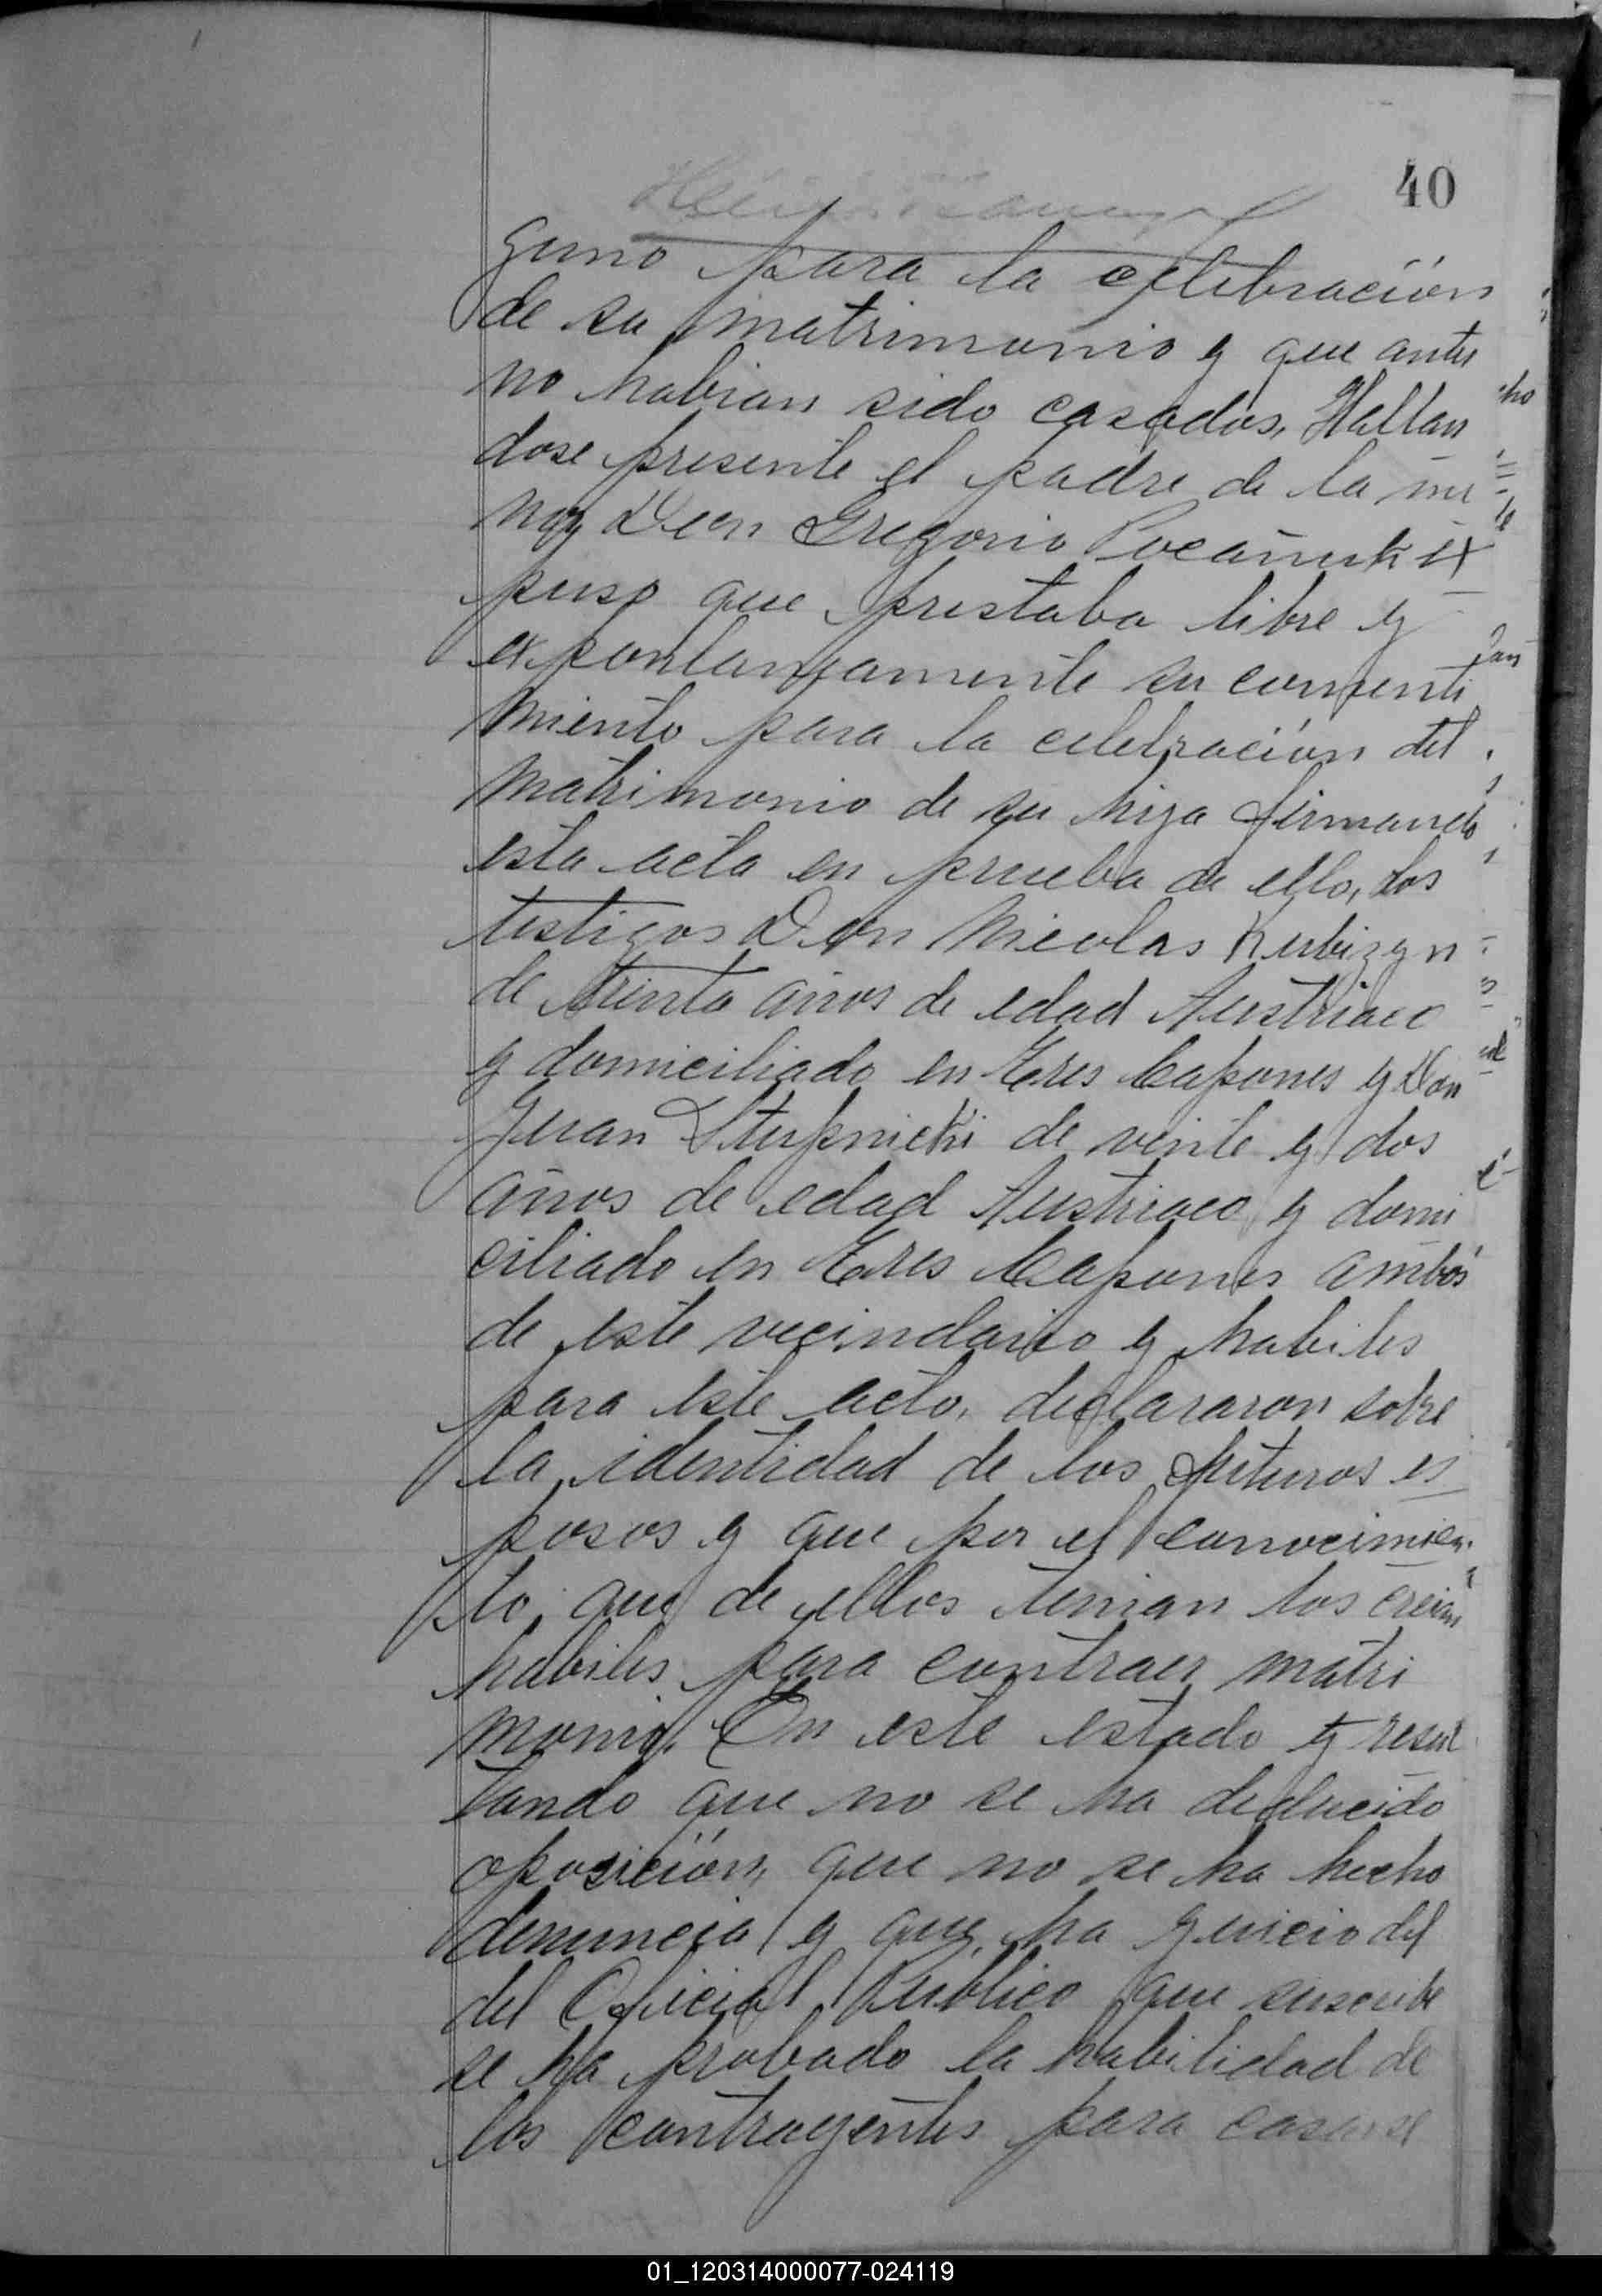 40
guno para la celebración
de su matrimonio y que antes
no habian sido casados, Hallan
dose presente el padre de la me
nor Don Gregorio Pocañuk ex
puso que prestaba libre y
expontaneamente su consenti
miento para la celebración del
matrimonio de su hija firmando
esta acta en prueba de ello, los
testigos Don Nicolas Kubizyn
de treinta años de edad Austriaco
y domiciliado en Tres Capones y Don
Juan Stupnicki de veinte y dos
años de edad Austriaco y domi
ciliado en Tres Capones ambos
de este vecindario y habiles
para este acto, declararon sobre
la identidad de los futuros es
posos y que por el conocimien
to que de ellos tenian los creian
habiles para contraer matri
monio. En este estado y resul
tando que no se ha deducido
oposición, que no se ha hecho
denuncia y que ha guicio del
del Oficial Publico que suscribe
se ha probado la habilidad de
los contrayentes para casarse
01_120314000077-024119